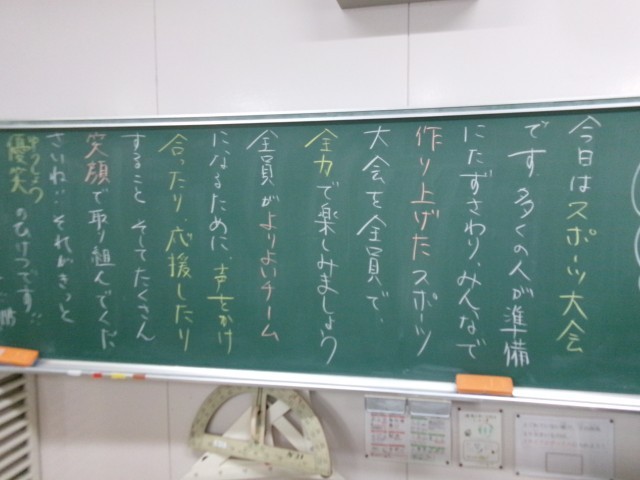 今日はスポーツ大会
です。多くの人が準備
にたずさわり、みんなで
作り上げたスポーツ
大会を全員で、
全力で楽しみましょう
全員がよりよいチーム
になるために、声をかけ
合ったり、応援したり
すること そしてたくさん
笑顔で取り組んでくだ
さいね‥それがきっと
優笑のひけつです‼